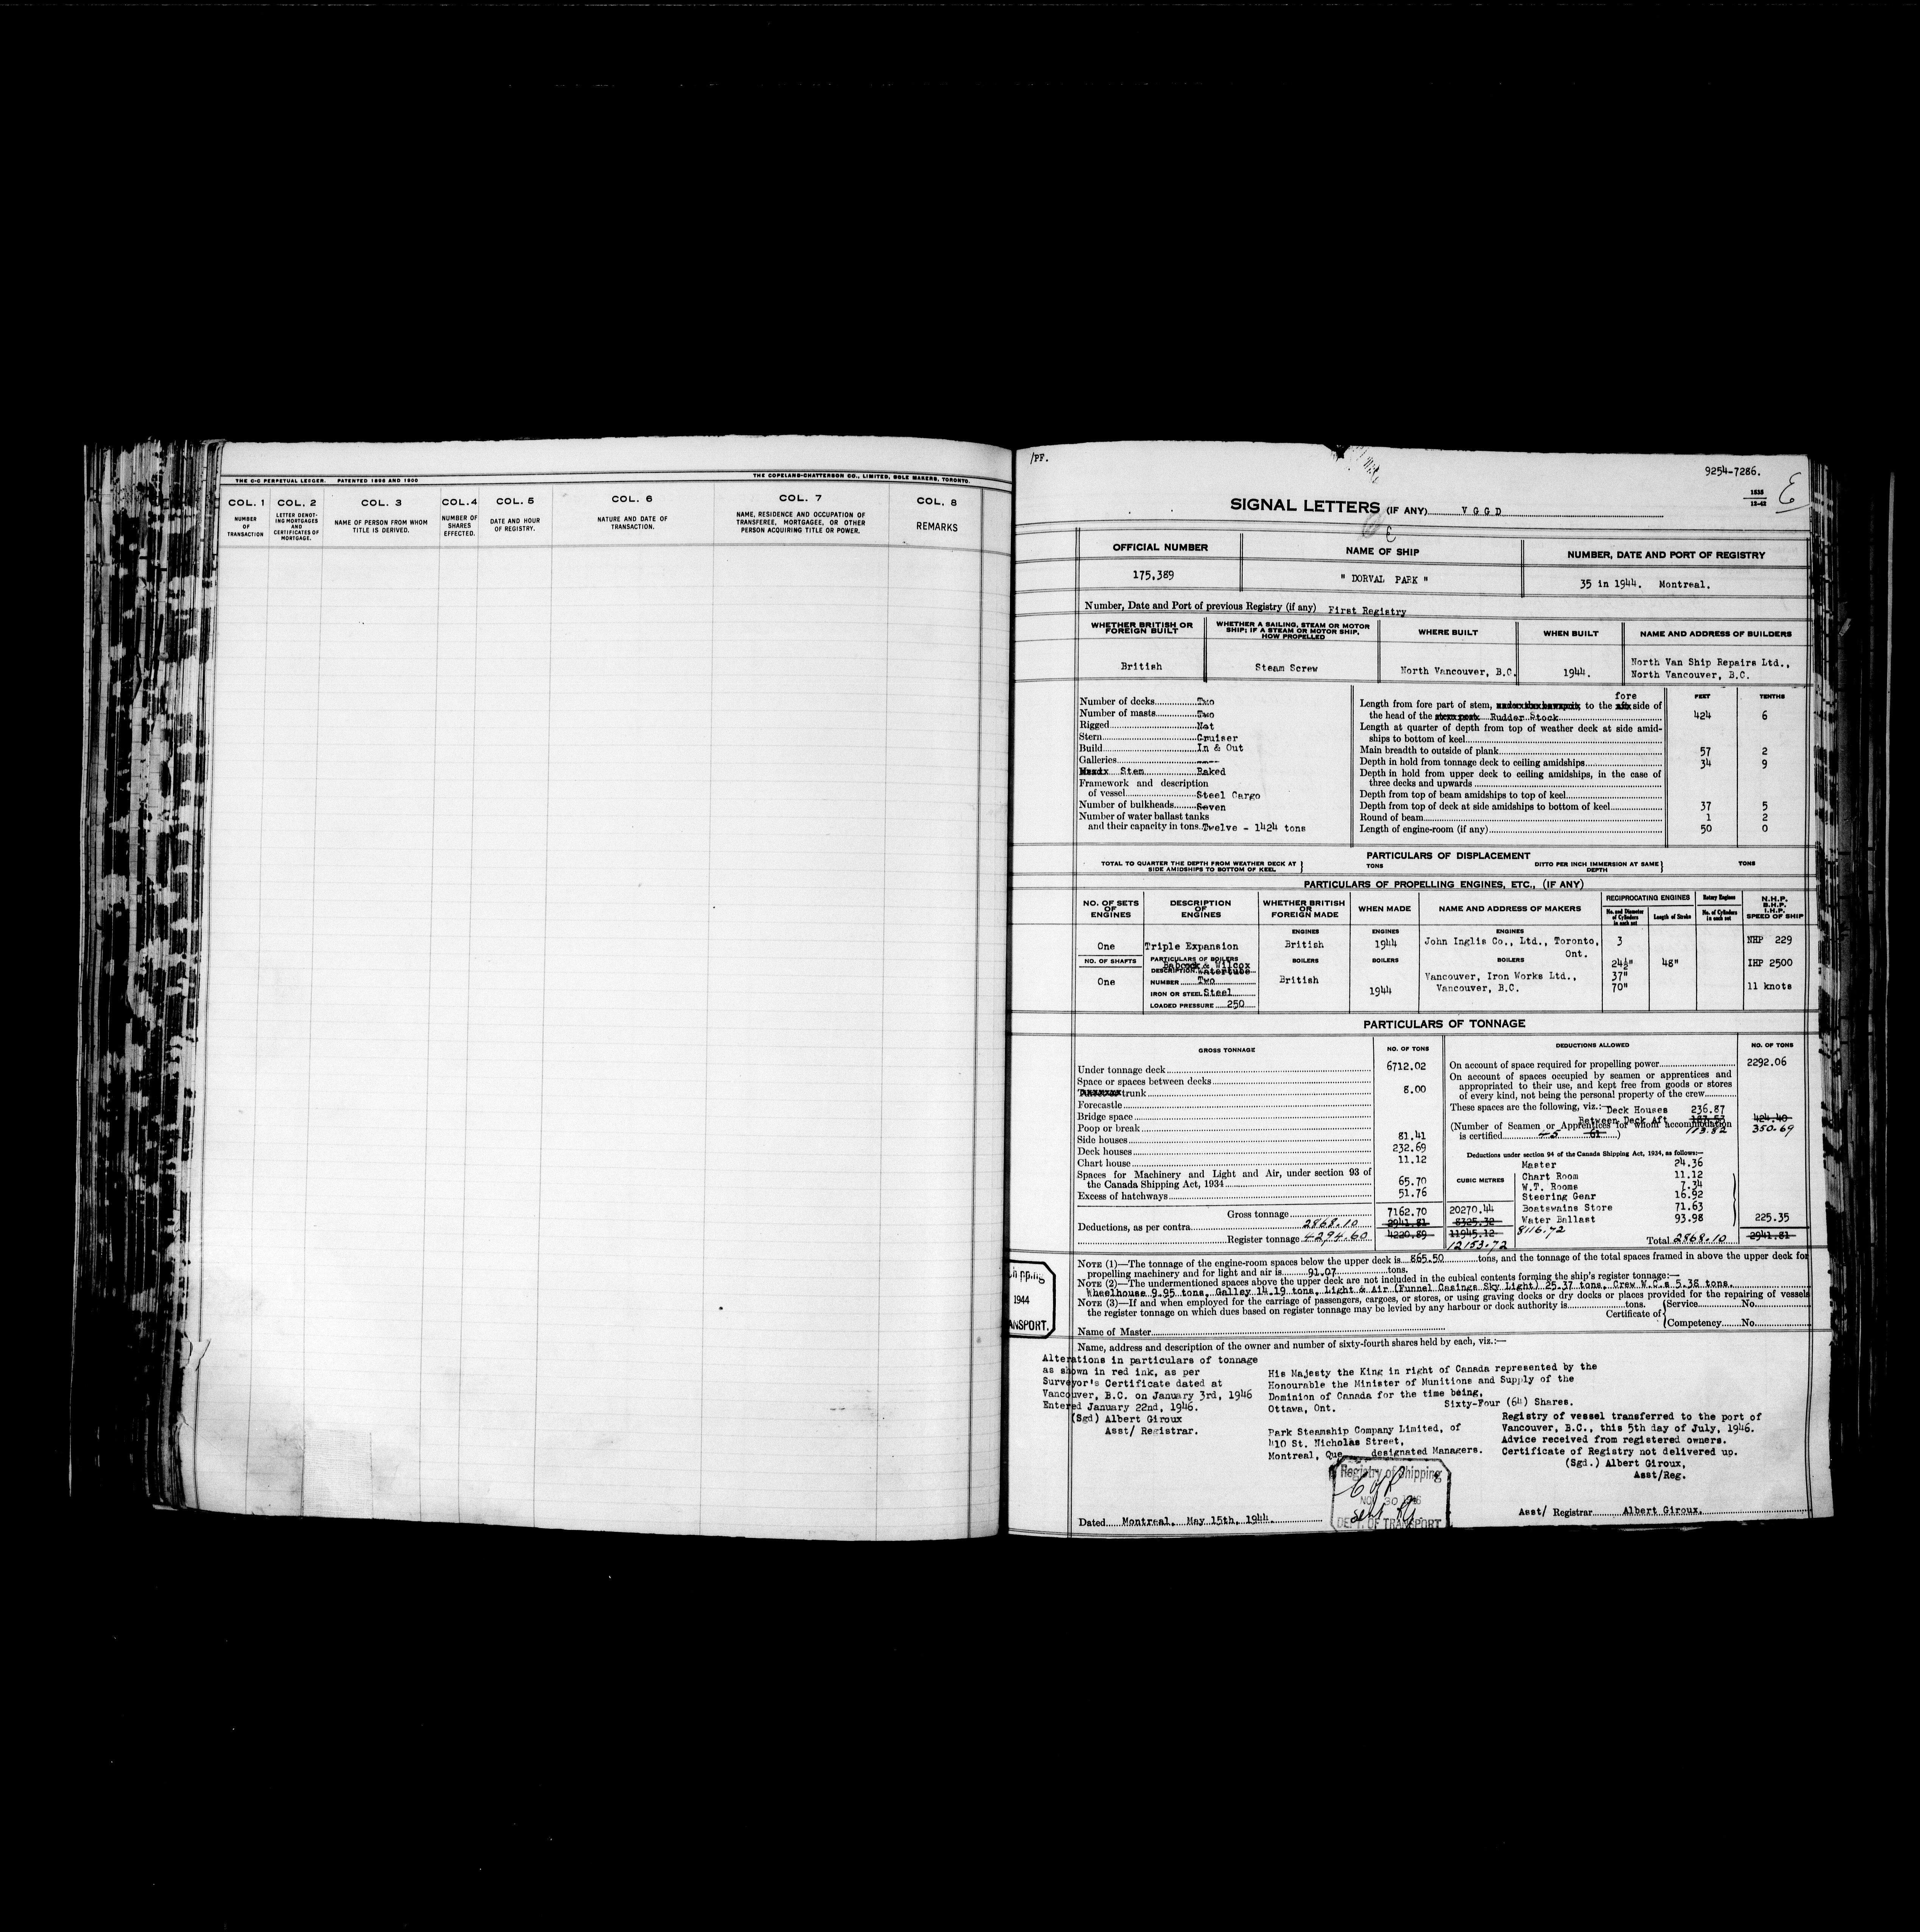 THE C-C PERPETUAL LEDGER. PATENTED 1896 AND 1900
THE COPELAND-CHATTERSON CO., LIMITED, SOLE MAKERS, TORONTO.
COL. 1
NUMBER
OF
TRANSACTION
COL. 2
LETTER DENOT-
ING MORTGAGES
AND
CERTIFICATES OF
MORTGAGE.
COL. 3
NAME OF PERSON FROM WHOM
TITLE IS DERIVED.
COL. 4
NUMBER OF
SHARES
EFFECTED.
COL. 5
DATE AND HOUR
OF REGISTRY.
COL. 6
NATURE AND DATE OF
TRANSACTION.
COL. 7
NAME, RESIDENCE AND OCCUPATION OF
TRANSFEREE, MORTGAGEE, OR OTHER
PERSON ACQUIRING TITLE OR POWER.
COL. 8
REMARKS
/PP.
9254-7286.
1535
12-42
E
SIGNAL LETTERS (IF ANY) V G G D
OFFICIAL NUMBER
175,389
NAME OF SHIP
" DORVAL PARK "
NUMBER, DATE AND PORT OF REGISTRY
35 in 1944. Montreal.
Number, Date and Port of previous Registry (if any) First Registry
WHETHER BRITISH OR
FOREIGN BUILT
British
WHETHER A SAILING, STEAM OR MOTOR
SHIP; IF A STEAM OR MOTOR SHIP,
HOW PROPELLED
Steam Screw
WHERE BUILT
North Vancouver, B.C.
WHEN BUILT
1944.
NAME AND ADDRESS OF BUILDERS
North Van Ship Repairs Ltd.,
North Vancouver, B.C.
Number of decks Two
Number of masts Two
Rigged Not
Stern Cruiser
Build In & Out
Galleries ----
Stem Raked
Framework and description
of vessel Steel Cargo
Number of bulkheads Seven
Number of water ballast tanks
and their capacity in tons Twelve - 1424 tons
FEET TENTHS
fore
Length from fore part of stem, to the side of
the head of the Rudder Stock 424 6
Length at quarter of depth from top of weather deck at side amid-
ships to bottom of keel
Main breadth to outside of plank 57 2
Depth in hold from tonnage deck to ceiling amidships 34 9
Depth in hold from upper deck to ceiling amidships, in the case of
three decks and upwards
Depth from top of beam amidships to top of keel
Depth from top of deck at side amidships to bottom of keel 37 5
Round of beam 1 2
Length of engine-room (if any) 50 0
PARTICULARS OF DISPLACEMENT
TOTAL TO QUARTER THE DEPTH FROM WEATHER DECK AT
SIDE AMIDSHIPS TO BOTTOM OF KEEL
TONS
DITTO PER INCH IMMERSION AT SAME
DEPTH
TONS
PARTICULARS OF PROPELLING ENGINES, ETC., (IF ANY)
NO. OF SETS
OF
ENGINES
One
NO. OF SHAFTS
One
DESCRIPTION
OF
ENGINES
Triple Expansion
PARTICULARS OF BOILERS
Babcock & Wilcox
DESCRIPTION Watertube
NUMBER Two
IRON OR STEEL Steel
LOADED PRESSURE 250
WHETHER BRITISH
OR
FOREIGN MADE
ENGINES
British
BOILERS
British
WHEN MADE
ENGINES
1944
BOILERS
1944
NAME AND ADDRESS OF MAKERS
ENGINES
John Inglis Co., Ltd., Toronto,
Ont.
BOILERS
Vancouver, Iron Works Ltd.,
Vancouver, B.C.
RECIPROCATING ENGINES
No. and Diameter
of Cylinders
in each set
3
24½"
37"
70"
Length of Stroke
48"
Rotary Engines
No. of Cylinders
in each set
N.H.P.
B.H.P.
I.H.P.
SPEED OF SHIP
NHP 229
IHP 2500
11 knots
PARTICULARS OF TONNAGE
GROSS TONNAGE
NO. OF TONS
Under tonnage deck 6712.02
Space or spaces between decks
trunk 8.00
Forecastle
Bridge space
Poop or break
Side houses 81.41
Deck houses 232.69
Chart house 11.12
Spaces for Machinery and Light and Air, under section 93 of
the Canada Shipping Act, 1934 65.70
Excess of hatchways 51.76
Gross tonnage 7162.70
Deductions, as per contra 2868.10 2941.81
Register tonnage 4294.60 4220.89
CUBIC METRES
20270.44
8325.32
8116.72
11945.12
12153.72
DEDUCTIONS ALLOWED
NO. OF TONS
On account of space required for propelling power 2292.06
On account of spaces occupied by seamen or apprentices and
appropriated to their use, and kept free from goods or stores
of every kind, not being the personal property of the crew
These spaces are the following, viz.:— Deck Houses 236.87
Between Deck Aft 187.53 424.40
(Number of Seamen or Apprentices for whom accommodation 113.82 350.69
is certified 45 61 )
Deductions under section 94 of the Canada Shipping Act, 1934, as follows:—
Master 24.36
Chart Room 11.12
W.T. Rooms 7.34
Steering Gear 16.92
Boatswains Store 71.63
Water Ballast 93.98
225.35
Total 2868.10 2941.81
NOTE (1)—The tonnage of the engine-room spaces below the upper deck is 865.50 tons, and the tonnage of the total spaces framed in above the upper deck for
propelling machinery and for light and air is 91.07 tons.
NOTE (2)—The undermentioned spaces above the upper deck are not included in the cubical contents forming the ship's register tonnage:—
Wheelhouse 9.95 tons, Galley 14.19 tons, Light & Air (Funnel Casings Sky Light) 25.37 tons, Crew W.C.s 5.38 tons.
NOTE (3)—If and when employed for the carriage of passengers, cargoes, or stores, or using graving docks or dry docks or places provided for the repairing of vessels
the register tonnage on which dues based on register tonnage may be levied by any harbour or dock authority is tons.
Certificate of
Service No.
Competency No.
Name of Master
1944
ANSPORT.
Name, address and description of the owner and number of sixty-fourth shares held by each, viz.:—
Alterations in particulars of tonnage
as shown in red ink, as per
Surveyor's Certificate dated at
Vancouver, B.C. on January 3rd, 1946
Entered January 22nd, 1946.
(Sgd) Albert Giroux
Asst/ Registrar.
His Majesty the King in right of Canada represented by the
Honourable the Minister of Munitions and Supply of the
Dominion of Canada for the time being,
Ottawa, Ont. Sixty-Four (64) Shares.
Park Steamship Company Limited, of
410 St. Nicholas Street,
Montreal, Que. designated Managers.
Registry of vessel transferred to the port of
Vancouver, B.C., this 5th day of July, 1946.
Advice received from registered owners.
Certificate of Registry not delivered up.
(Sgd.) Albert Giroux,
Asst/Reg.
Registry of Shipping
NOV 30 1946
DEPT. OF TRANSPORT
Dated Montreal, May 15th, 1944.
Asst/ Registrar Albert Giroux.